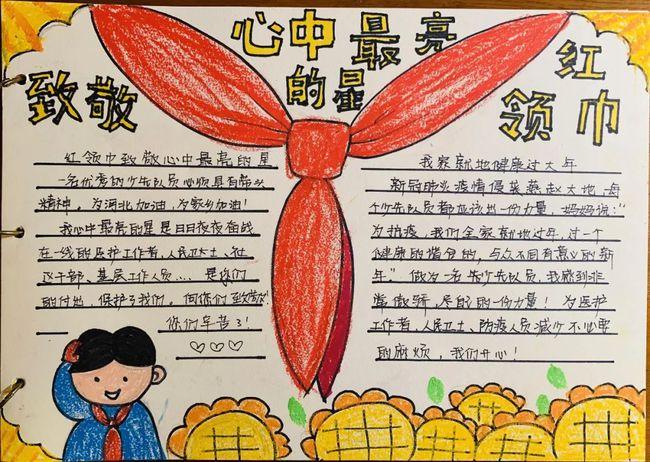 红领巾
致敬
心中最亮
的星
红领巾致敬心中最亮的星
一名优秀的少先队员必须具有带头
精神。为河北加油,为家乡加油!
我心中最亮的星是日日夜夜奋战
在一线的医护工作者,人民卫士、社
区干部、基层工作人员....是你们
的付出,保护了我们。向你们致敬!
你们辛苦了!
我家就地健康过大年
新冠肺炎疫情侵袭燕赵大地,每
个少先队员都应该出一份力量,妈妈说:“
为抗疫,我们全家就地过年,过一个
健康的 与众不同有意义的新
年”做为一名 少先队员,我感到非
常骄傲,尽自己的一份力量!为医护
工作者,人民卫士、防疫人员减少不必要
的麻烦,我们开心!